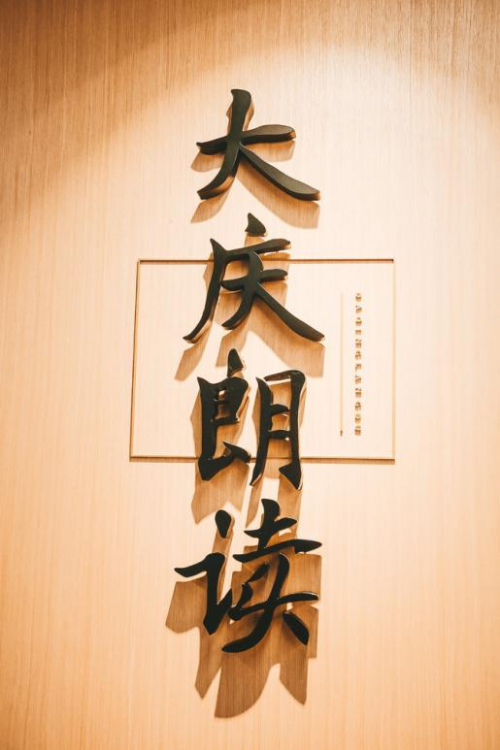 大庆朗读